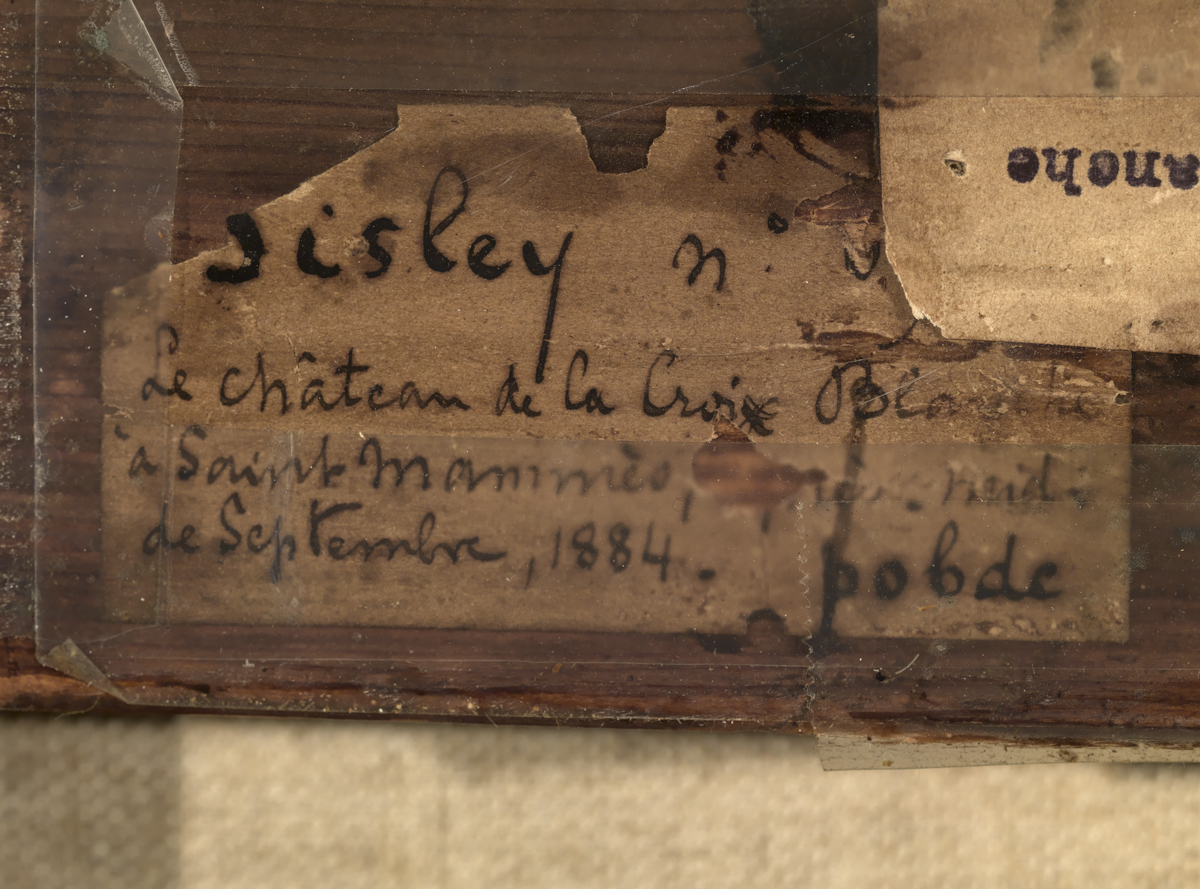 Sisley n°
Le château de la Croix Blanche
à Saint Mammès,
de Septembre, 1884.
pobde
anche